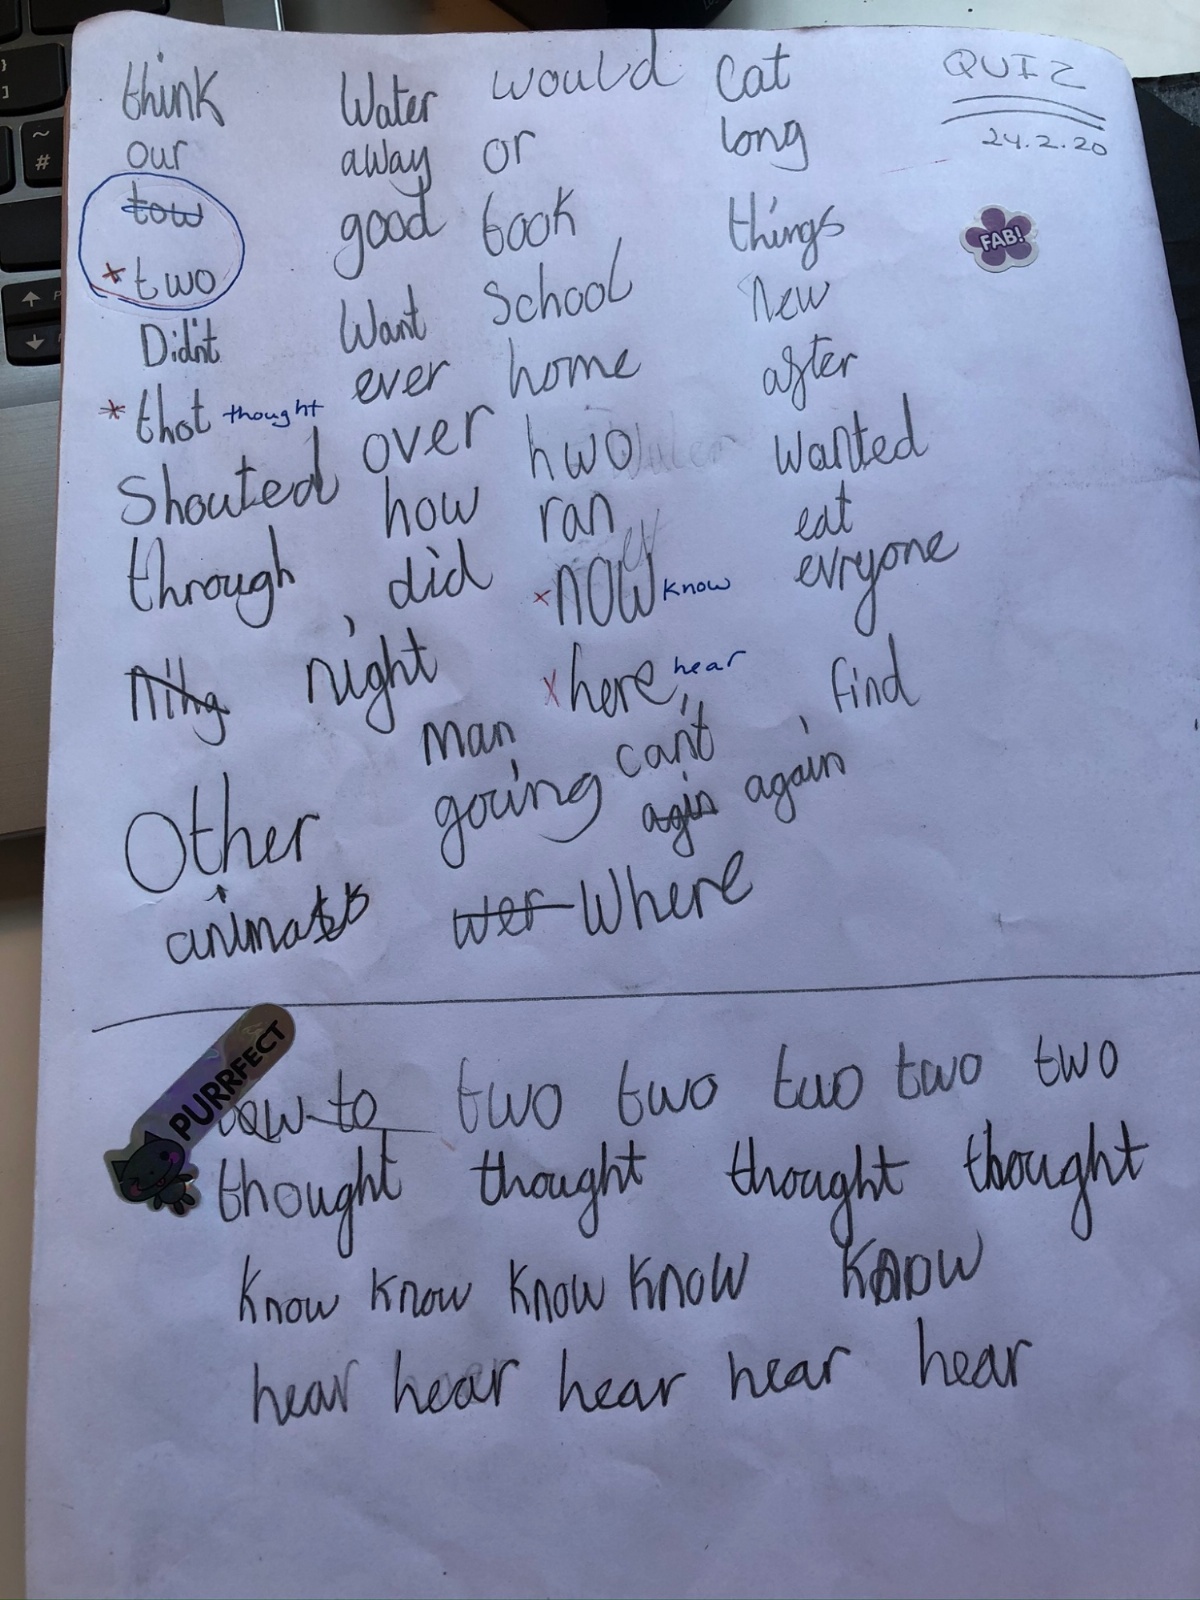 think Water would Cat QUIZ
our away or long 24.2.20
tow good book things FAB!
*two
Didnt Want School New
*thot thought ever home after
Shouted over hwo wanted
through how ran eat
did xnow know evryone
Nihg night xhere hear find
man can't
Other going agin again
animals wer Where
PURRFECT
tow to two two two two two
thought thought thought thought
know know know know know
hear hear hear hear hear